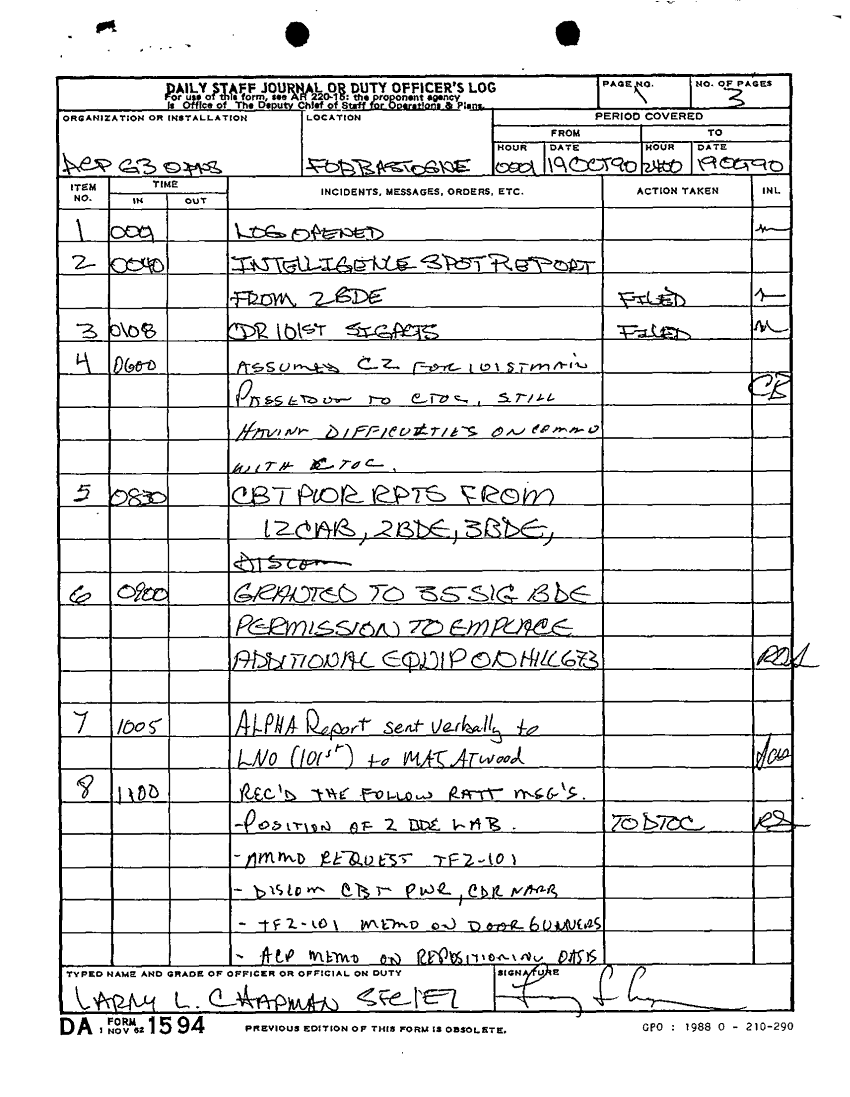 DAILY STAFF JOURNAL OR DUTY OFFICER'S LOG
For use of this form, see AR 220-15; the proponent agency
is Office of The Deputy Chief of Staff for Operations & Plans.
PAGE NO.
1
NO. OF PAGES
3
ORGANIZATION OR INSTALLATION
ACP G3 OPNS
LOCATION
FOB BASTOGNE
PERIOD COVERED
FROM TO
HOUR DATE HOUR DATE
0001 19 OCT 90 2400 19 OCT 90
ITEM NO. TIME IN OUT INCIDENTS, MESSAGES, ORDERS, ETC. ACTION TAKEN INL
1 0001 LOG OPENED
2 0040 INTELLIGENCE SPOT REPORT
FROM 2 BDE FILED
3 0108 CDR 101ST SIGACTS FILED
4 0600 ASSUMES C2 FOR 101ST MAIN
PASSED TO CTOC, STILL CB
HAVING DIFFICULTIES ON COMMO
WITH CTOC.
5 0830 CBT PWR RPTS FROM
12 CAB, 2BDE, 3BDE,
DISCOM
6 0900 GRANTED TO 35 SIG BDE
PERMISSION TO EMPLACE
ADDITIONAL EQUIP ON HILL 673
7 1005 ALPHA Report sent verbally to
LNO (101st) to MAJ Atwood
8 1100 REC'D THE FOLLOW RATT MSG'S.
-POSITION OF 2 BDE LAB. TO DTOC RS
-AMMO REQUEST TF2-101
- DISCOM CBT PWR, CDR NARR
- TF2-101 MEMO ON DOOR GUNNERS
- ACP MEMO ON REPOSITIONING OASIS
TYPED NAME AND GRADE OF OFFICER OR OFFICIAL ON DUTY
LARRY L. CHAPMAN SFC/E7
SIGNATURE
DA FORM 1 NOV 62 1594
PREVIOUS EDITION OF THIS FORM IS OBSOLETE.
GPO : 1988 O - 210-290